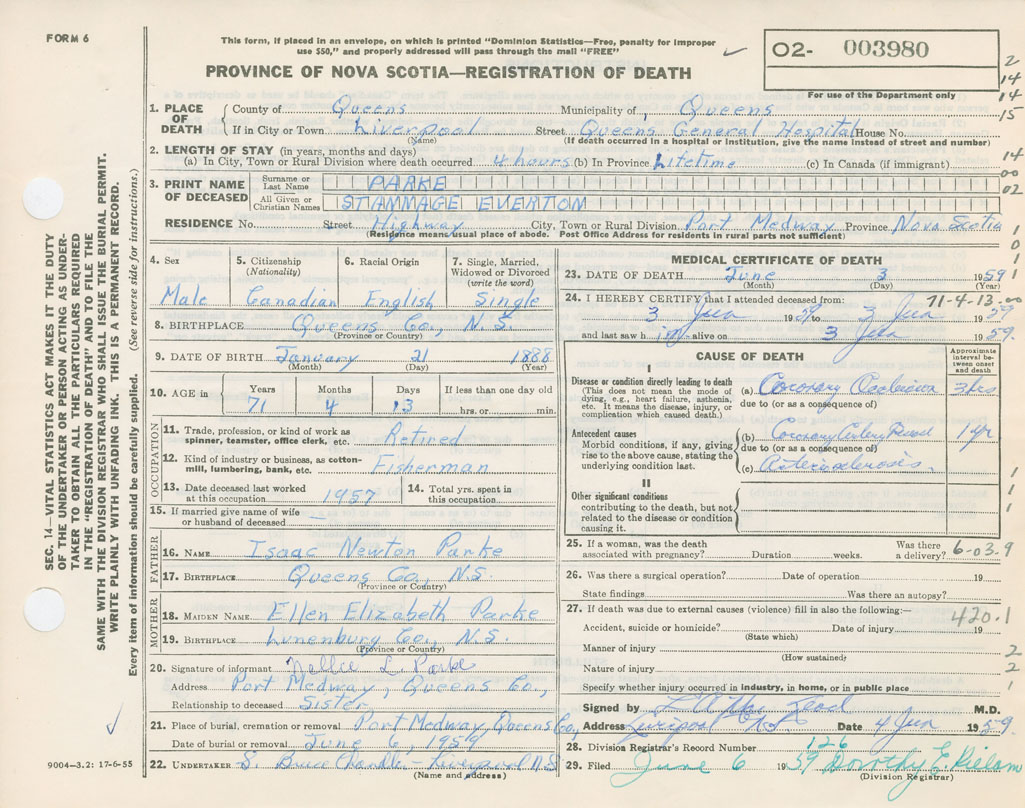 FORM 6
This form, if placed in an envelope, on which is printed "Dominion Statistics—Free, penalty for improper
use $50," and properly addressed will pass through the mail "FREE"
O2- 003980
For use of the Department only
PROVINCE OF NOVA SCOTIA—REGISTRATION OF DEATH
1. PLACE OF DEATH County of Queens Municipality of Queens
If in City or Town Liverpool Street Queens General Hospital House No.
(Name) (If death occurred in a hospital or institution, give the name instead of street and number)
2. LENGTH OF STAY (in years, months and days)
(a) In City, Town or Rural Division where death occurred 4 hours (b) In Province Lifetime (c) In Canada (if immigrant)
3. PRINT NAME OF DECEASED Surname or Last Name PARKE
All Given or Christian Names STAMMAGE EVERTON
RESIDENCE No. Street Highway City, Town or Rural Division Port Medway Province Nova Scotia
(Residence means usual place of abode. Post Office Address for residents in rural parts not sufficient)
4. Sex Male
5. Citizenship (Nationality) Canadian
6. Racial Origin English
7. Single, Married, Widowed or Divorced (write the word) Single
8. BIRTHPLACE Queens Co., N.S.
(Province or Country)
9. DATE OF BIRTH January 21 1888
(Month) (Day) (Year)
10. AGE in Years Months Days If less than one day old
71 4 13 hrs. or min.
OCCUPATION
11. Trade, profession, or kind of work as
spinner, teamster, office clerk, etc. Retired
12. Kind of industry or business, as cotton-
mill, lumbering, bank, etc. Fisherman
13. Date deceased last worked at this occupation 1957
14. Total yrs. spent in this occupation
15. If married give name of wife
or husband of deceased —
FATHER
16. NAME Isaac Newton Parke
17. BIRTHPLACE Queens Co., N.S.
(Province or Country)
MOTHER
18. MAIDEN NAME Ellen Elizabeth Parke
19. BIRTHPLACE Lunenburg Co., N.S.
(Province or Country)
20. Signature of informant Nellie L. Parke
Address Port Medway, Queens Co.,
Relationship to deceased Sister
21. Place of burial, cremation or removal Port Medway, Queens Co.,
Date of burial or removal June 6, 1959
22. UNDERTAKER S. Bruce Chandler - Liverpool N.S.
(Name and address)
MEDICAL CERTIFICATE OF DEATH
23. DATE OF DEATH June 3 1959
(Month) (Day) (Year)
24. I HEREBY CERTIFY that I attended deceased from: 71-4-13-00
3 Jun 1959 to 3 Jun 1959
and last saw him alive on 3 Jun 1959.
CAUSE OF DEATH
Approximate interval between onset and death
I
Disease or condition directly leading to death
(This does not mean the mode of
dying, e.g., heart failure, asthenia,
etc. It means the disease, injury, or
complication which caused death.)
(a) Coronary Occlusion 3 hrs
due to (or as a consequence of)
Antecedent causes
Morbid conditions, if any, giving
rise to the above cause, stating the
underlying condition last.
(b) Coronary Artery 1 yr
due to (or as a consequence of)
(c) Arteriosclerosis.
II
Other significant conditions
contributing to the death, but not
related to the disease or condition
causing it.
25. If a woman, was the death
associated with pregnancy? Duration weeks. Was there a delivery? 6-03.9
26. Was there a surgical operation? Date of operation 19
State findings Was there an autopsy?
27. If death was due to external causes (violence) fill in also the following:—
420.1
Accident, suicide or homicide? Date of injury 19
(State which)
Manner of injury
(How sustained)
Nature of injury
Specify whether injury occurred in industry, in home, or in public place
Signed by M.D.
Address Liverpool N.S. Date 4 Jun 1959.
28. Division Registrar's Record Number 126
29. Filed June 6 1959 Dorothy E.
(Division Registrar)
2
14
14
15
14
00
02
1
0
1
1
1
1
1
2
2
1
SEC. 14—VITAL STATISTICS ACT MAKES IT THE DUTY
OF THE UNDERTAKER OR PERSON ACTING AS UNDER-
TAKER TO OBTAIN ALL THE PARTICULARS REQUIRED
IN THE "REGISTRATION OF DEATH" AND TO FILE THE
SAME WITH THE DIVISION REGISTRAR WHO SHALL ISSUE THE BURIAL PERMIT.
WRITE PLAINLY WITH UNFADING INK. THIS IS A PERMANENT RECORD.
Every item of information should be carefully supplied. (See reverse side for instructions.)
9004—3.2: 17-6-55